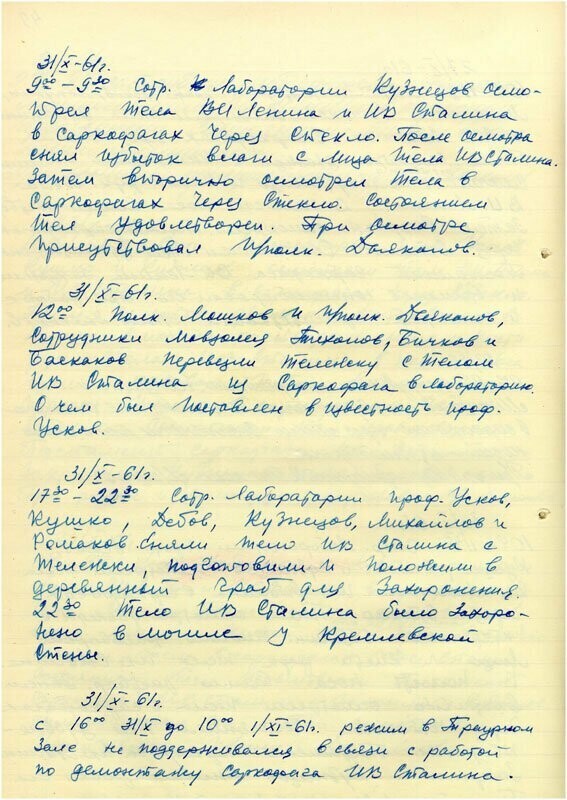 31/X-61г.
9⁰⁰ – 9³⁰ Сотр. Лаборатории Кузнецов осмо-
трел тела ВИ Ленина и ИВ Сталина
в саркофагах через стекло. После осмотра
снял избыток влаги с лица тела ИВ Сталина.
Затем вторично осмотрел тела в
саркофагах через стекло. Состоянием
тел удовлетворен. При осмотре
присутствовал п/полк.
31/X-61г.
12⁰⁰ Полк. Мошков и п/полк.
сотрудники Мавзолея Тихонов, Бичков и
Баскаков перевезли тележку с телом
ИВ Сталина из Саркофага в Лабораторию.
О чем был поставлен в известность проф.
Усков.
31/X-61г.
17³⁰ – 22³⁰ Сотр. Лаборатории проф. Усков,
Кушко, Дебов, Кузнецов, Михайлов и
сняли тело ИВ Сталина с
тележки, подготовили и положили в
деревянный гроб для захоронения.
22³⁰ тело ИВ Сталина было захоро-
нено в могиле у Кремлевской
стены.
31/X-61г.
с 16⁰⁰ 31/X до 10⁰⁰ 1/XI-61г. режим в Траурном
Зале не поддерживался в связи с работой
по демонтажу саркофага ИВ Сталина.